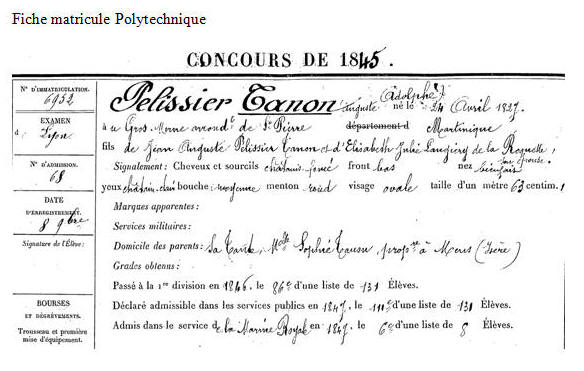 Fiche matricule Polytechnique
CONCOURS DE 1845.
N° D'IMMATRICULATION.
6952
EXAMEN
à Lyon
N° D'ADMISSION.
68
DATE
D'ENREGISTREMENT.
8 9bre
Signature de l'Élève:
BOURSES
ET DÉGRÈVEMENTS.
Trousseau et première
mise d'équipement.
Pelissier Tanon, Auguste Adolphe né le 24 Avril 1827
à u Gros-Morne arrondt de St Pierre département d Martinique
fils de Jean Auguste Pélissier Tanon et d'Elisabeth Julie Laugiery de la Roquelle, son épouse.
Signalement: Cheveux et sourcils châtain-foncé front bas nez
yeux châtain-clair bouche moyenne menton rond visage ovale taille d'un mètre 63 centim.
Marques apparentes:
Services militaires:
Domicile des parents: Sa tante, Melle Sophie Tanon, propre à Mens (Isère)
Grades obtenus:
Passé à la 1re division en 1846. le 86e d'une liste de 131 Élèves.
Déclaré admissible dans les services publics en 1847, le 111e d'une liste de 131 Élèves.
Admis dans le service de la Marine Royale en 1847. le 6e d'une liste de 8 Élèves.